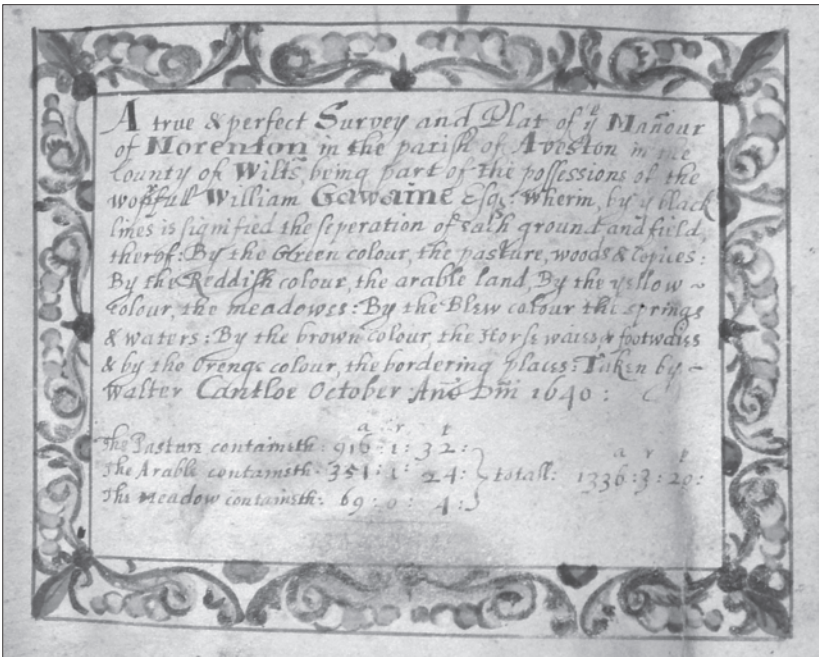 A true & perfect Survey and Plat of yᵉ Mañour
of Morenton in the parish of Aveston in the
County of Wilts, being part of the possessions of the
worᵖfull William Gawaine Esq: wherin, by yᵉ black
lines is signified the seperation of each ground and field
therof: By the Green colour, the pasture, woods & Copices:
By the Reddish colour, the arable land, By the yellow ~
Colour, the meadowes: By the Blew colour the springs
& waters: By the brown colour, the Horse waies & footwaies
& by the Orenge colour, the bordering places: Taken by ~
Walter Cantloe October Año Dm̃ 1640:
a r p
The Pasture containeth: 916: 1: 32:
The Arable containeth: 351: 1: 24: } totall: 1336: 3: 20:
a r p
The Meadow containeth: 69: 0: 4: